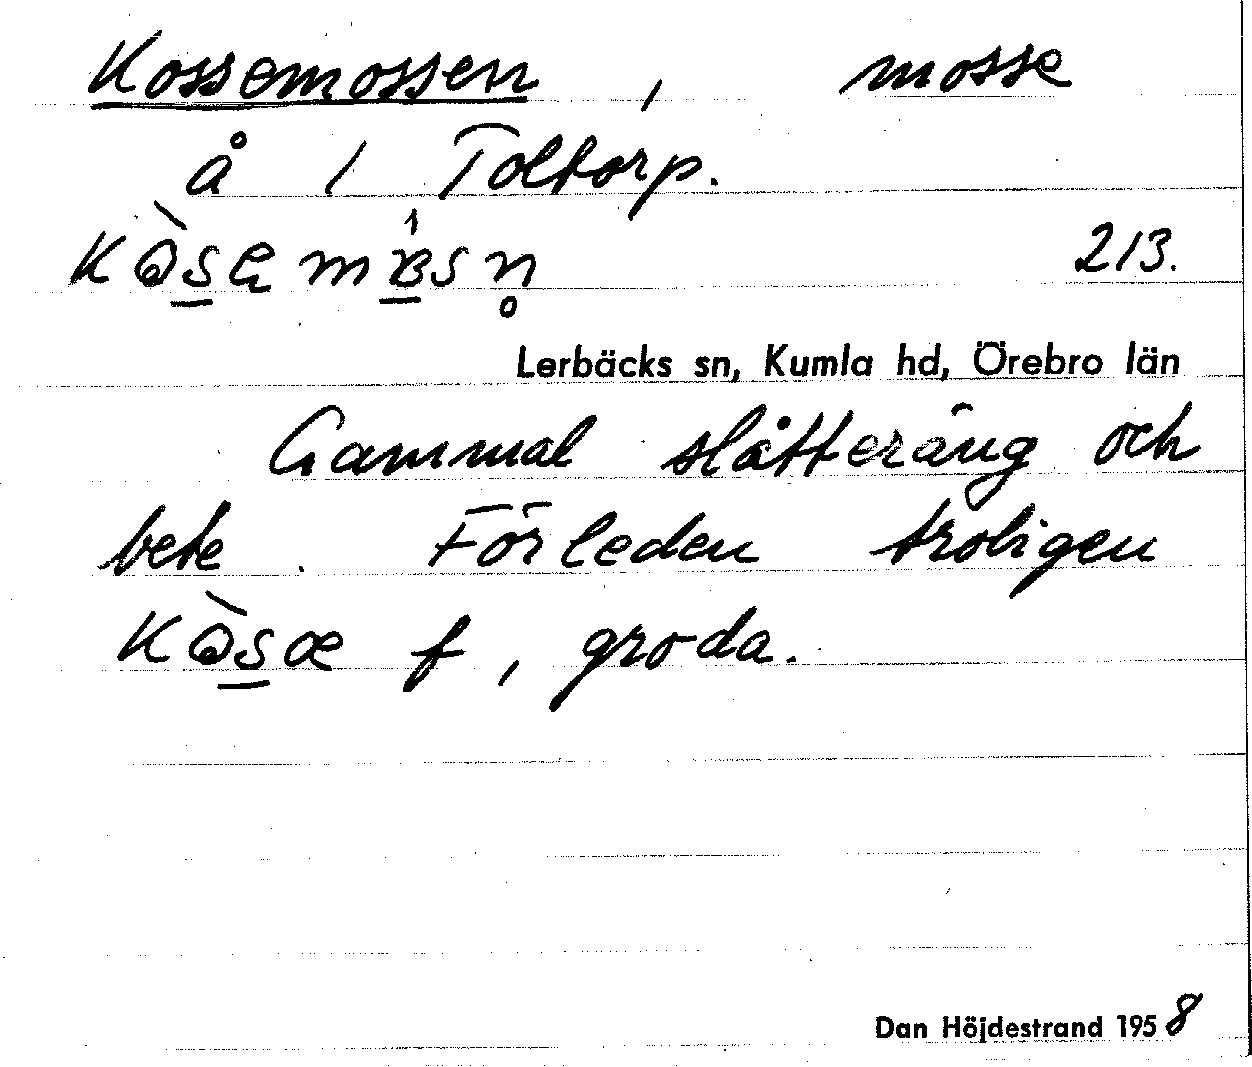 Kossemossen, mosse
å 1 Toltorp.
213.
Lerbäcks sn, Kumla hd, Örebro län
Gammal slåtteräng och
bete. Förleden troligen
f, groda.
Dan Höjdestrand 1958